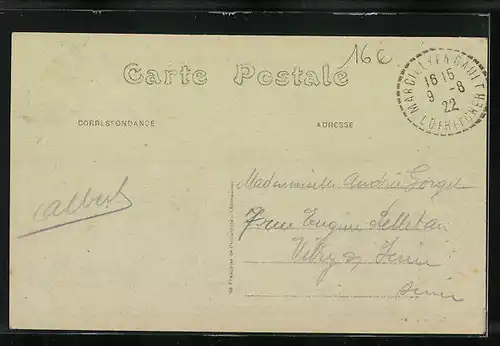 16€
Carte Postale
MARCILLY EN GAULT
16 15
9 -8
22
LOIR-ET-CHER
CORRESPONDANCE
ADRESSE
Mademoiselle Andrée Gorget
Albert
7 rue Eugène Pelletan
Vitry s/ Seine
Seine